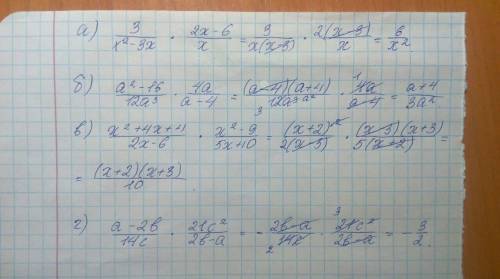 а) 3/(x²-3x) · (2x-6)/x = 3/(x(x-3)) · 2(x-3)/x = 6/x²
б) (a²-16)/(12a³) · 4a/(a-4) = (a-4)(a+4)/(12a³ a²) · 4a/(a-4) = (a+4)/(3a²)
в) (x²+4x+4)/(2x-6) · (x²-9)/(5x+10) = (x+2)²/(2(x-3)) · (x-3)(x+3)/(5(x+2)) =
= (x+2)(x+3)/10
г) (a-2b)/(14c) · 21c²/(2b-a) = - (2b-a)/(14c) · 21c²/(2b-a) = - 3/2.